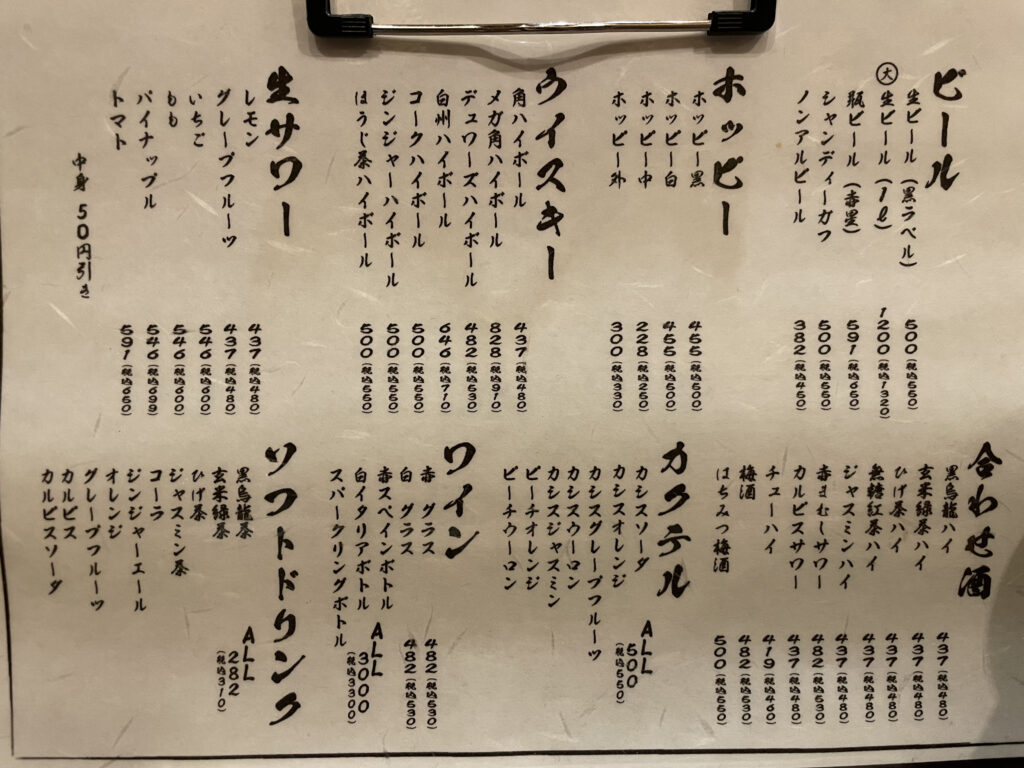 ビール
生ビール（黒ラベル） 500（税込550）
㊅生ビール（1ℓ） 1200（税込1320）
瓶ビール（赤星） 591（税込650）
シャンディーガフ 500（税込550）
ノンアルビール 382（税込450）
ホッピー
ホッピー黒 455（税込500）
ホッピー白 455（税込500）
ホッピー中 228（税込250）
ホッピー外 300（税込330）
ウイスキー
角ハイボール 437（税込480）
メガ角ハイボール 828（税込910）
デュワーズハイボール 482（税込530）
白州ハイボール 646（税込710）
コークハイボール 500（税込550）
ジンジャーハイボール 500（税込550）
ほうじ茶ハイボール 500（税込550）
生サワー
レモン 437（税込480）
グレープフルーツ 437（税込480）
いちご 546（税込600）
もも 546（税込600）
パイナップル 546（税込699）
トマト 591（税込650）
中身 50円引き
合わせ酒
黒烏龍ハイ 437（税込480）
玄米緑茶ハイ 437（税込480）
ひげ茶ハイ 437（税込480）
無糖紅茶ハイ 437（税込480）
ジャスミンハイ 437（税込480）
赤まむしサワー 482（税込530）
カルピスサワー 437（税込480）
チューハイ 419（税込460）
梅酒 482（税込530）
はちみつ梅酒 500（税込550）
カクテル
カシスソーダ
カシスオレンジ
カシスグレープフルーツ
カシスウーロン
カシスジャスミン
ピーチオレンジ
ピーチウーロン
ALL
500
（税込550）
ワイン
赤 グラス 482（税込530）
白 グラス 482（税込530）
赤スペインボトル
白イタリアボトル
スパークリングボトル
ALL
3000
（税込3300）
ソフトドリンク
黒烏龍茶
玄米緑茶
ひげ茶
ジャスミン茶
コーラ
ジンジャーエール
オレンジ
グレープフルーツ
カルピス
カルピスソーダ
ALL
282
（税込310）